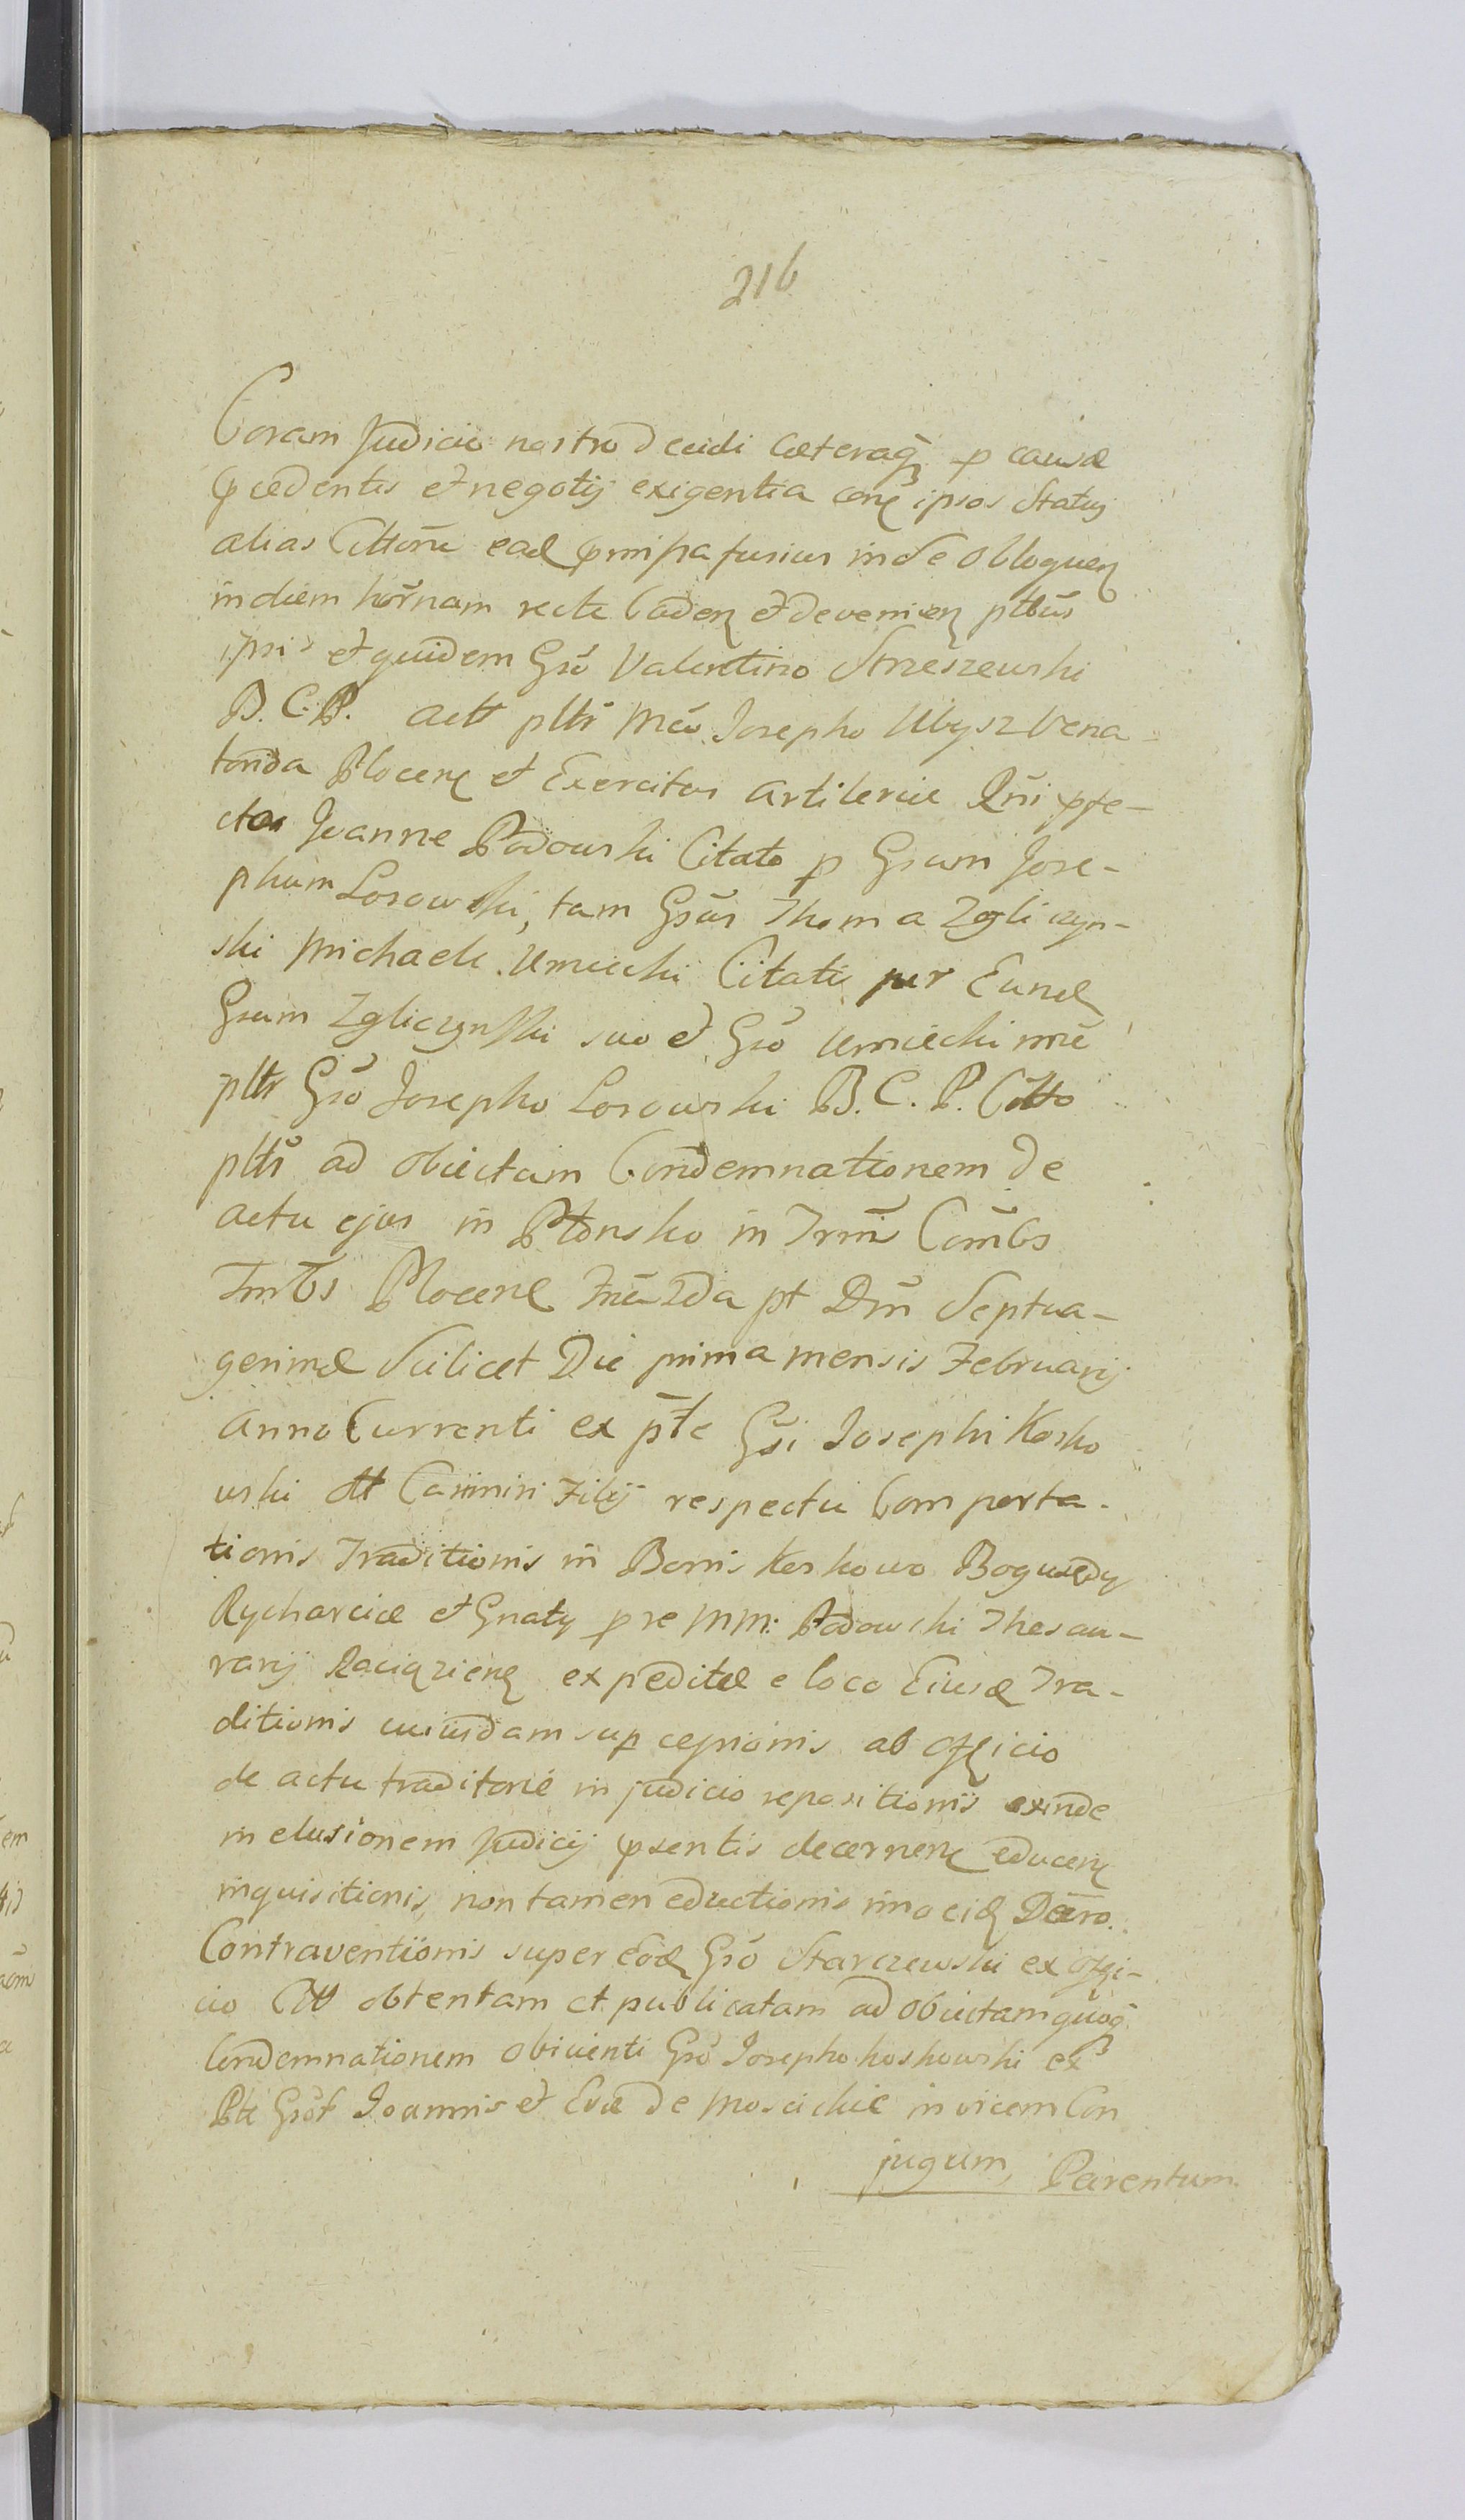 216
Coram Judicio nostro decidi caeteraq̃ p causae
pcedentis et negotij exigentia conc̨ ipsos Statuj
alias Citt̃one ead pmissa fusius inde obloquen̨
in diem hõrnam recte Caden̨ et devenien̨ pttbus
ipsis et quidem Gsõ Valentino Strzeszewski
B. C. P. act pttr Mco Josepho Ubysz Vena-
torida Plocen̨ et Exercitus Artileriae Rñi pfe-
cto Joanne Podowski Citato p Gsum Jose-
phum Losowski, tam Gsũs Thoma Zgliczyn-
ski Michaele Umiecki Citatis per Eund
Gsum Zgliczynski suo et Gsõ Umiecki nñe
pttr Gsõ Josepho Losowski B. C. P. Citto
pttr ad obiectam Condemnationem de
actu ejus in Płonsko in Trmĩs Coñibs
Trribs Plocen̨ Fria 2da pt Dñm Septua-
gesimae Scilicet Die prima mensis Februarij
Anno Currenti ex pte Gsi Josephi Kosko
wski ott Casimiri Filij respectu Comporta-
tionis Traditionis in Bonis Koskowo Boguszędy
Rycharcice et Gnaty p re MM. Podowski Thesau-
rarij Raciązien̨ expeditae e loco Eiusd Tra-
ditionis cuiusdam supcessionis ab officio
de actu traditorie in judicio repositionis exinde
in elusionem Judicij psentis decernen̨ educen̨
inquisitionis, non tamen eductionis imo eid
Contraventionis super Eod Gsõ Starczewski ex offi-
cio Citt obtentam et publicatam ad obiectam quoq̃
Condemnationem obiicienti Gsõ Josepho Koskowski ex
Pte Gsõr Joannis et Evae de Moscickie invicem Con
jugum, Parentum